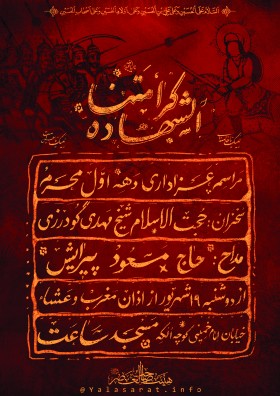 السلام علی الحسین و علی علی بن الحسین و علی اولاد الحسین و علی اصحاب الحسین
کرامتنا
الشهاده
مراسم عزاداری دهه اول محرم
سخنران: حجت الاسلام شیخ مهدی گودرزی
مداح: حاج مسعود پیرایش
از دوشنبه ۱۹ شهریور از اذان مغرب و عشاء
خیابان امام خمینی کوچه الکه مسجد ساعت
هیئت
@Yalasarat.info